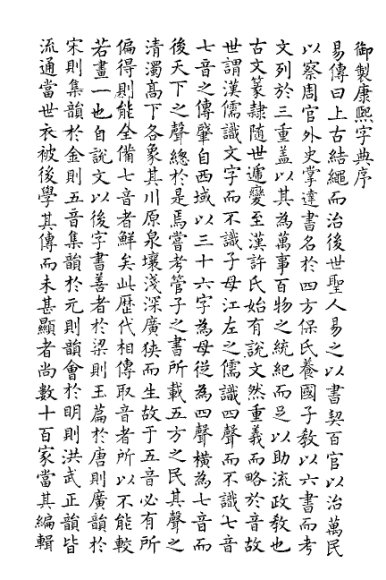 御製康熙字典序
易傳曰上古結繩而治後世聖人易之以書契百官以治萬民
以察周官外史掌達書名於四方保氏養國子教以六書而考
文列於三重蓋以其為萬事百物之統紀而足以助流政教也
古文篆隸随世遞變至漢許氏始有說文然重義而略於音故
世謂漢儒識文字而不識子母江左之儒識四聲而不識七音
七音之傳肇自西域以三十六字為母從為四聲橫為七音而
後天下之聲總於是焉嘗考管子之書所載五方之民其聲之
清濁髙下各象其川原泉壤淺深廣狹而生故于五音必有所
偏得則能全備七音者鮮矣此歴代相傳取音者所以不能較
若畫一也自說文以後字書善者於梁則玉篇於唐則廣韻於
宋則集韻於金則五音集韻於元則韻會於明則洪武正韻皆
流通當世衣被後學其傳而未甚顯者尚數十百家當其編輯